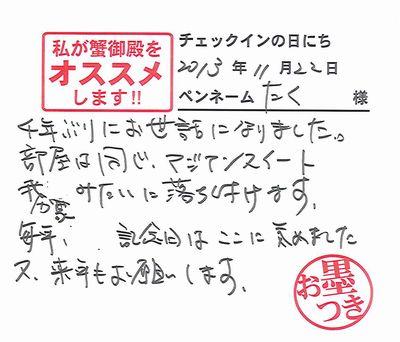 私が蟹御殿を
オススメ
します!!
チェックインの日にち
2013年11月22日
ペンネーム たく 様
4年ぶりにお世話になりました。
部屋は同じ、アジアンスイート
我が家みたいに落ち付けます。
毎年、記念日はここに決めました
又、来年もお願いします。
お墨つき